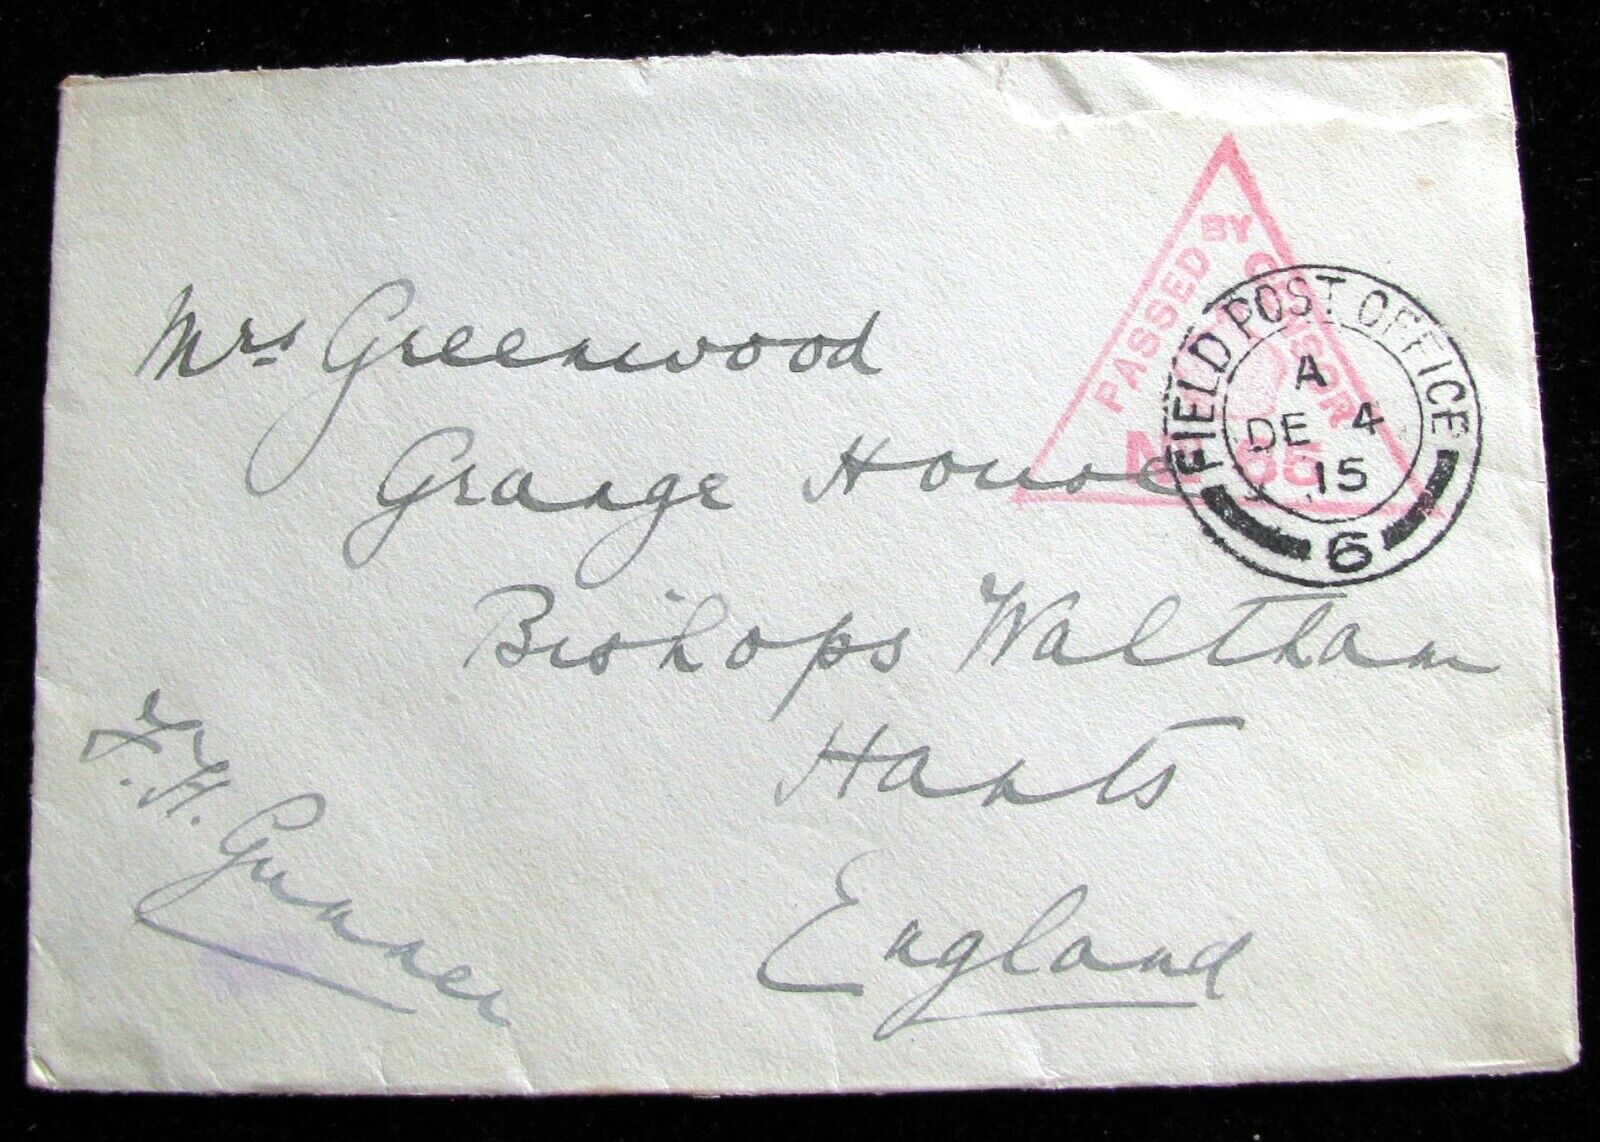 PASSED BY CENSOR
FIELD POST OFFICE
A
DE 4
15
6
Mrs Greenwood
Grange House
Bishops Waltham
Hants
England
F. H. Gunner